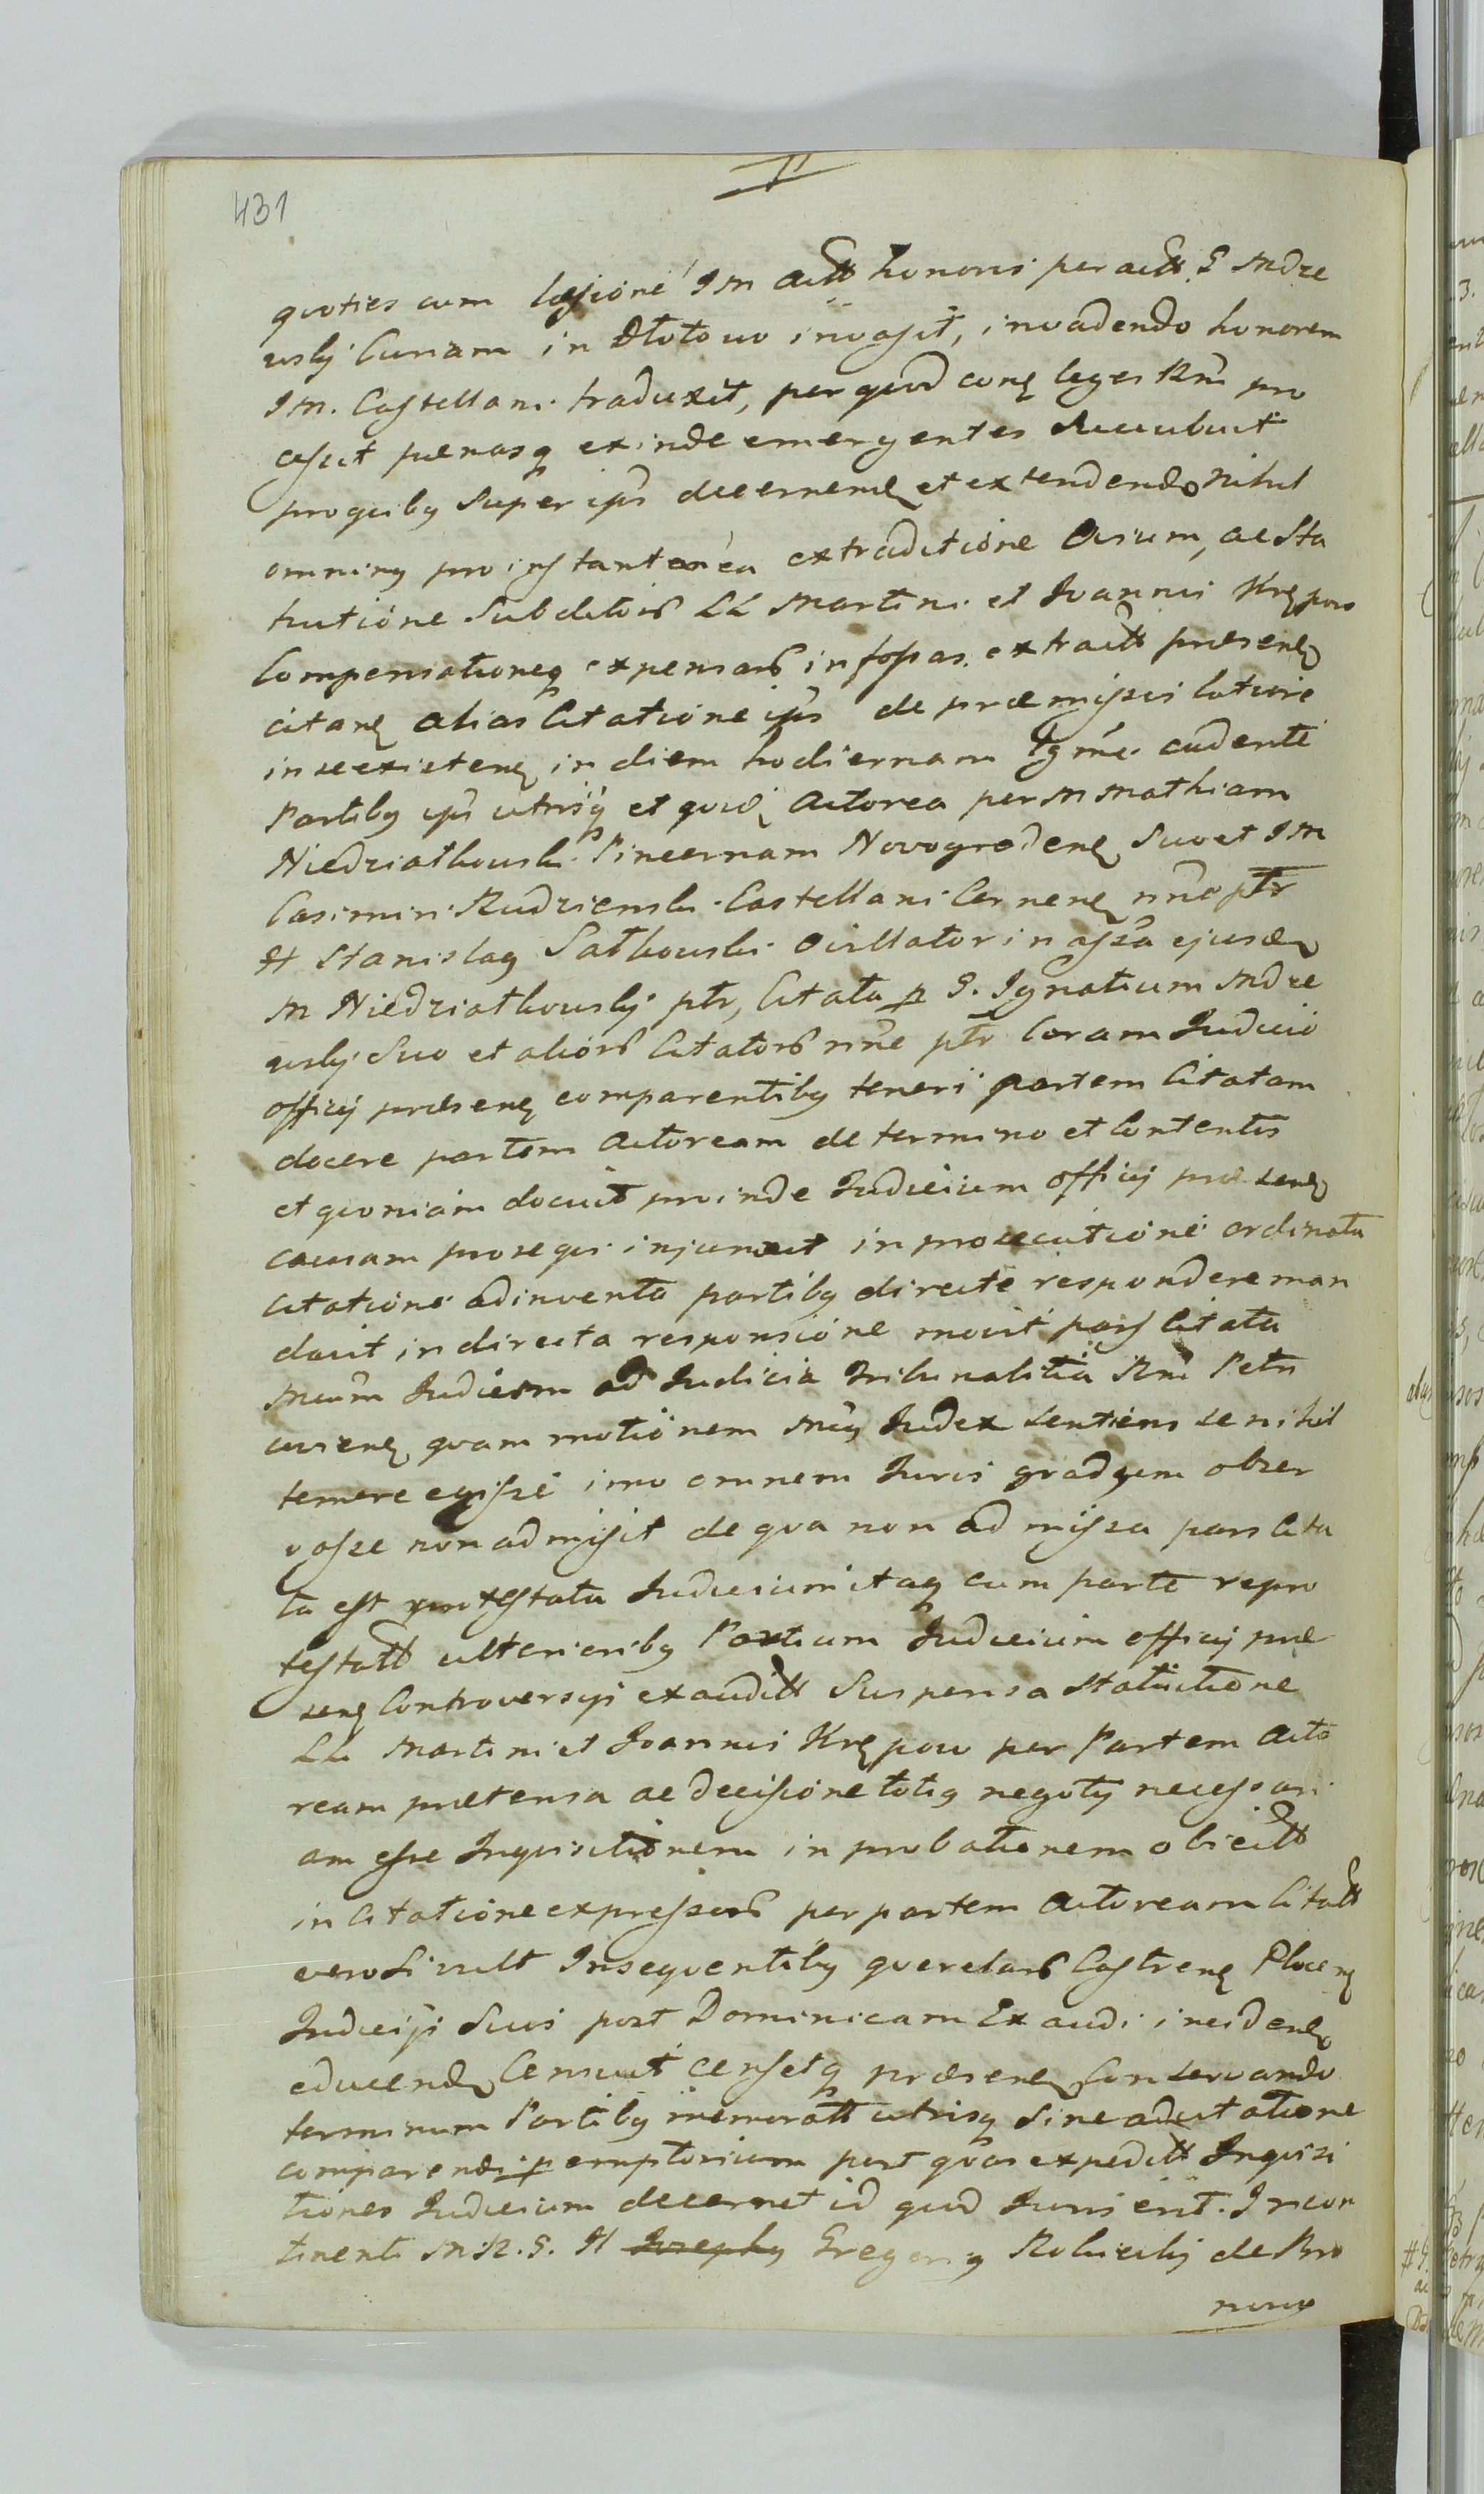 431
quoties cum læsione IM actt honoris per actt G Mdze
wsky Curiam in Dłutowo invasit, invadendo honorem
IM. Castellani traduxit, per quod conq leges Rni pro
cessit pænasq exinde emergentes succubuit
pro quibq super ips decernend et extendendo nihil
ominus pro instantanea extraditione avium, ac sta
tutione Subditor LL Martini et Joannis Krępow
Compensationeq expensar in fossas extractt præsenq
citanq alias Citatione ips de præmissis latius
in se existenq in diem hodiernam cadenti
Partibq ips utrisq et quid Actorea per M Mathiam
Niedziałkowski Pincernam Novogrodenq suo et IM
Casimiri Rudzienski Castellani Cernenq nno ptr
et Stanislaq Sałkowski oicllator in assa ejusdq
M Niedziałkowsky ptr, Citata p G. Ignatium Mdze
wsky Suo et alior Citator nne ptr Coram Judicio
officij præsenq comparentibq teneri partem Citatam
docere partem Actoream de termino et Contentis
et quoniam docuit proinde Judicium officij præsenq
causam prosequi injunxit in prosecutione ordinata
Citatione adinventa partibq directe respondere man
davit in directa responsione movit pars Citata
Mcum Judicem ad Judicia Tribunalitia Rni Petri
coviensq quam motionem Mcq Judex sentiens se nihil
temere egisse imo omnem Juris gradum obser
vasse non admisit de qua non admissa pars Cita
ta est protestata Judicium itaq cum parte repro
testatt ulterioribq Partium Judicium officij præ
senq Controversijs exauditt Suspensa statuitione
LL Martini et Joannis Krępow per Partem Acto
ream prætensa ac decisione totiq negotij necessari
am esse Inquisitionem in probationem obiectt
in Citatione expressor per partem Actoream Citatt
vero si vult Insequentibq querelar Castrenq Plocenq
Judicijs Suis post Dominicam Exaudi incidenq
educendq Censuit censetq præsenq conservando
terminum Partibq memoratt utrisq sine adcitatione
comparendi p emptorium post quas expeditt Inquisi
tiones Judicium decernet id quod Juris erit. Incon
tinenti M.R.G. H Josephq Gregoriq Rolnicky de Bro